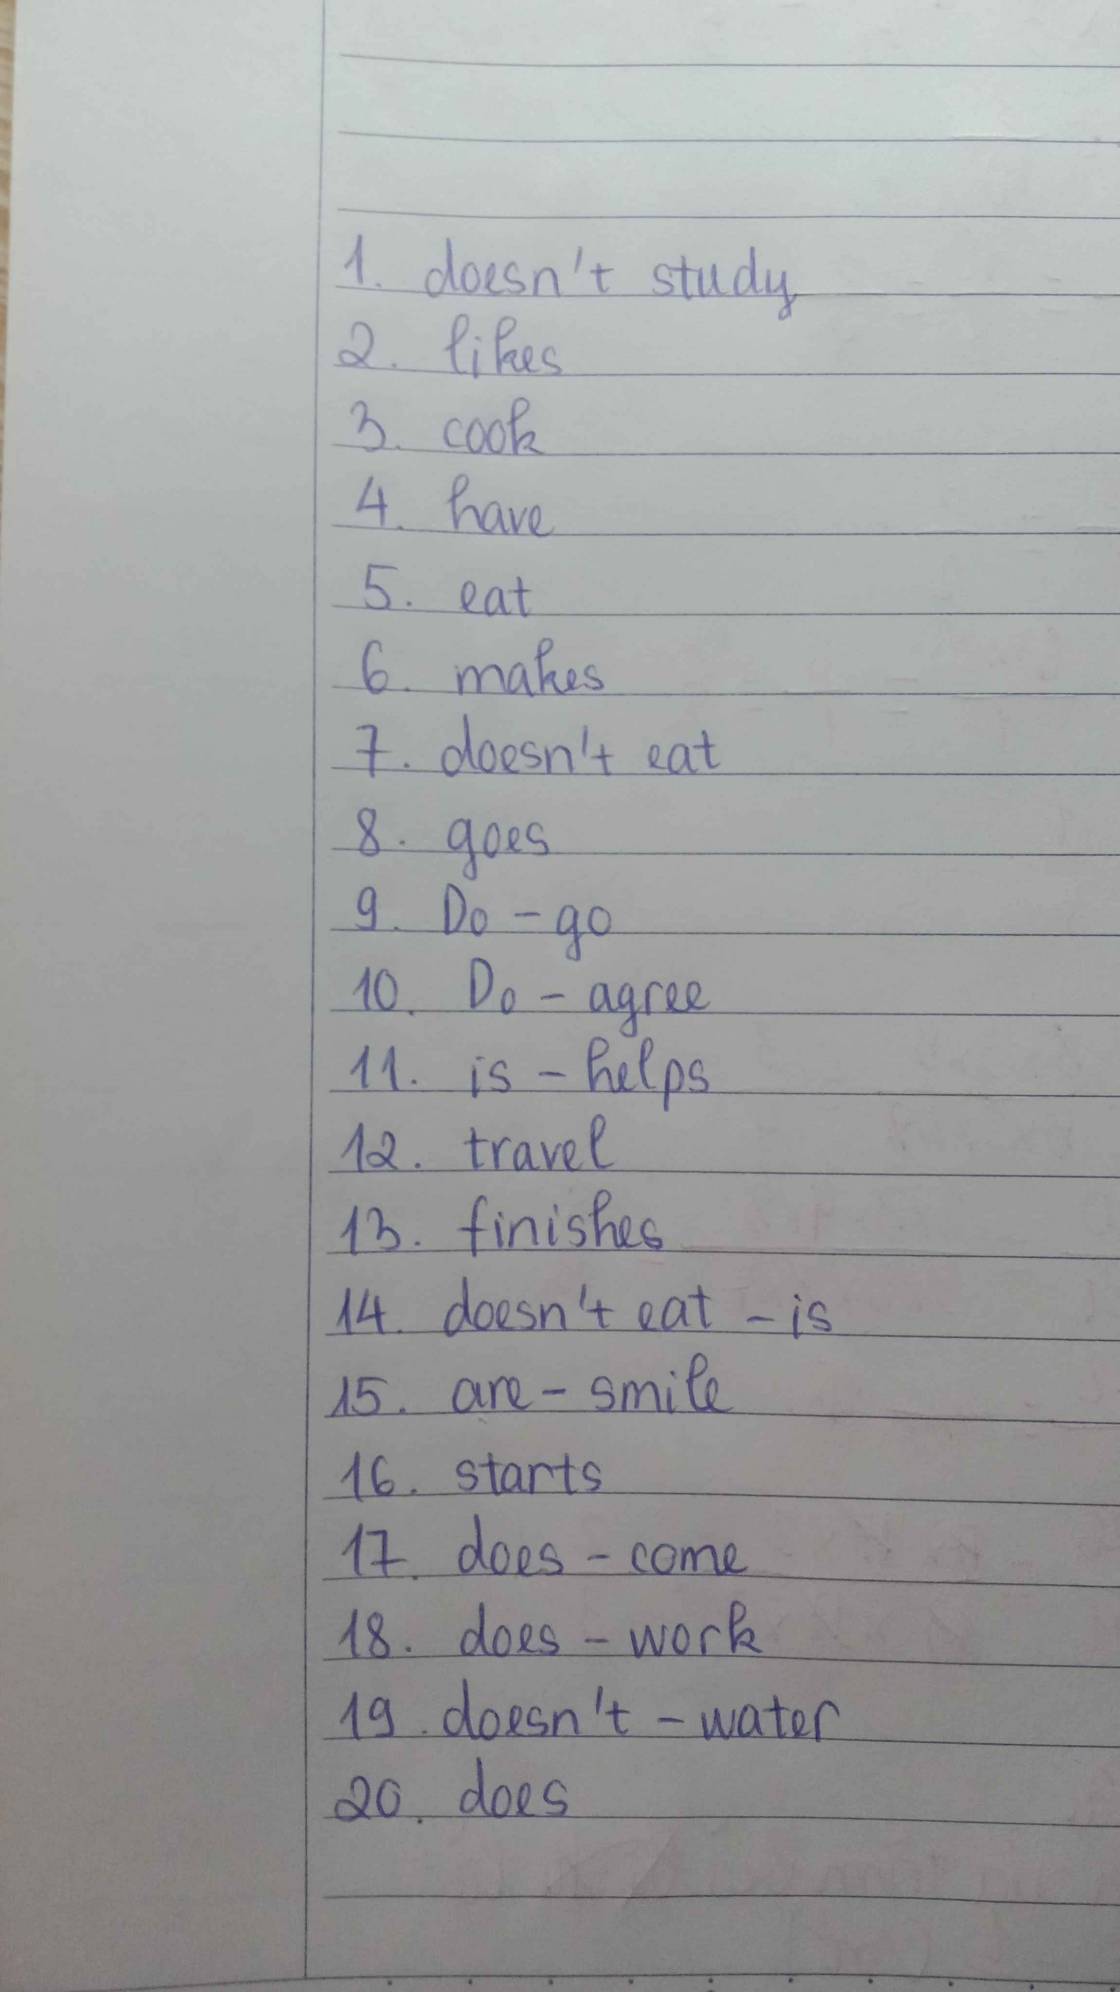 1. doesn't study
2. likes
3. cook
4. have
5. eat
6. makes
7. doesn't eat
8. goes
9. Do - go
10. Do - agree
11. is - helps
12. travel
13. finishes
14. doesn't eat - is
15. are - smile
16. starts
17. does - come
18. does - work
19. doesn't - water
20. does